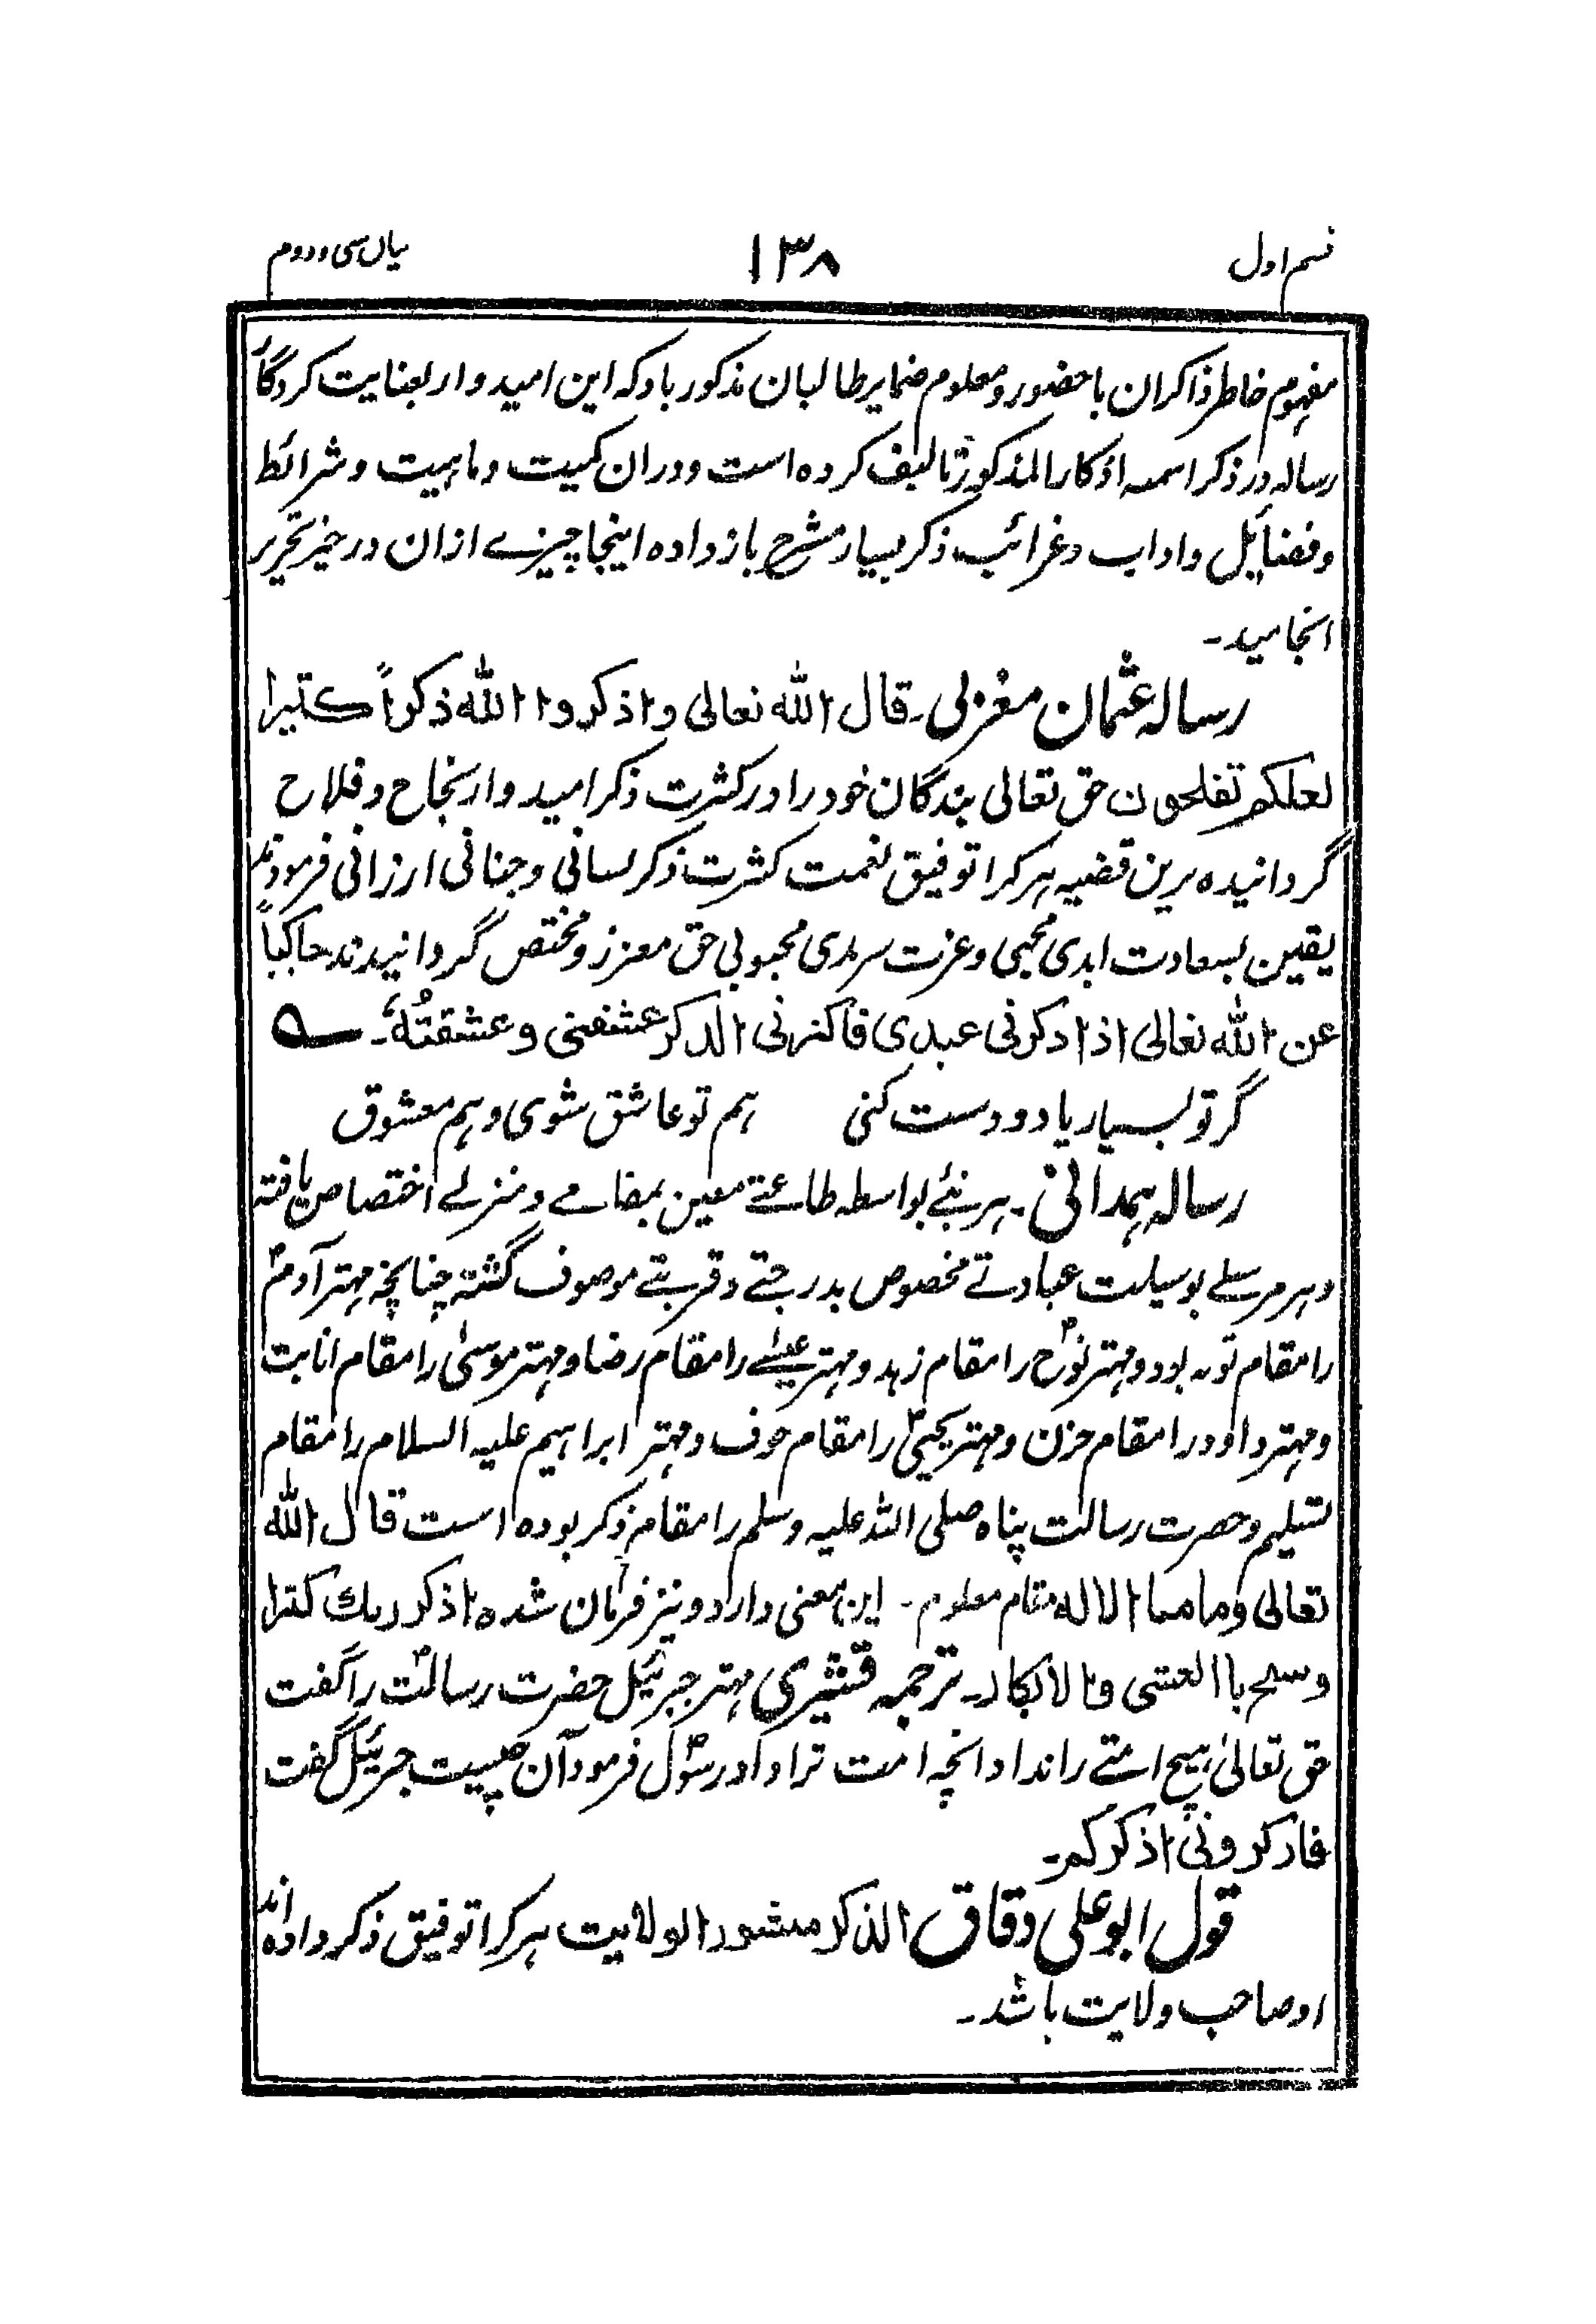 قسم اول ۱۳۸ بیان سی و دوم
مفہوم خاطر ذاکران باحضور و معلوم ضمایر طالبان مذکور باد کہ این امیدوار بعنایت کردگار
رسالہ در ذکر اسمہ اذکار المذکور تالیف کردہ است و دران کمیت و ماہیت و شرائط
و فضایل و اداب و غرائب ذکر بسیار مشرح باز دادہ اینجا چیزے ازان در حیز تحریر
انجامید۔
رسالہ عثمان مغربی۔ قال اللہ تعالی واذکروا اللہ ذکراً کثیرا
لعلکم تفلحون حق تعالی بندگان خود را در کثرت ذکر امیدوار نجاح و فلاح
گردانیدہ برین قضیہ ہر کرا توفیق نعمت کثرت ذکر لسانی و جنانی ارزانی فرمودند
یقین بسعادت ابدی محبی و عزت سرمدی محبوبی حق معزز و مختص گردانیدند حاکیاً
عن اللہ تعالی اذا ذکرنی عبدی فاکثرنی الذکر عشقنی و عشقتُہُ۔ ؎
گر تو بسیار یاد دوست کنی ہم تو عاشق شوی و ہم معشوق
رسالہ ہمدانی۔ ہر نبئے بواسطہ طاعتے معین بمقامے و منزلے اختصاص یافتہ
و ہر مرسلے بوسیلت عبادتے مخصوص بدرجتے و قربتے موصوف گشتہ چنانچہ مہتر آدمؑ
را مقام توبہ بود و مہتر نوحؑ را مقام زہد و مہتر عیسیٰ را مقام رضا و مہتر موسیٰ را مقام انابت
و مہتر داود را مقام حزن و مہتر یحییٰؑ را مقام خوف و مہتر ابراہیم علیہ السلام را مقام
تسلیم و حضرت رسالت پناہ صلی اللہ علیہ وسلم را مقام ذکر بودہ است قال اللہ
تعالی وما منا الا لہ مقام معلوم۔ این معنی دارد و نیز فرمان شدہ اذکر ربك کثیرا
وسبح باالعشی والابکار۔ ترجمہ قشیری مہتر جبرئیل حضرت رسالتؐ را گفت
حق تعالیٰ ہیچ امتے را نداد انچہ امت ترا داد رسولؐ فرمود آن چیست جبرئیل گفت
فاذکرونی اذکرکم۔
قول ابوعلی دقاق الذکر منشور الولایت ہر کرا توفیق ذکر دادہ اند
او صاحب ولایت باشد۔